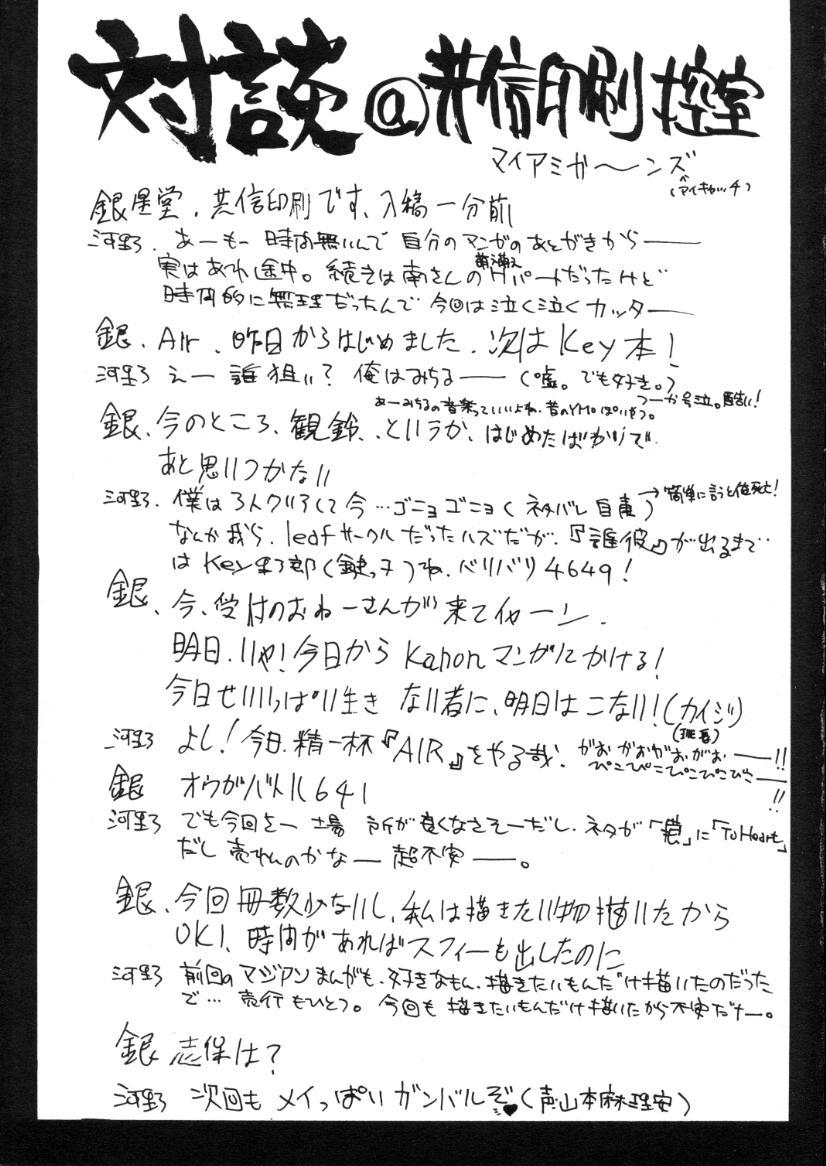 対談@共信印刷控室
マイアミガ〜ンズ
(アイキャッチ)
銀星堂、共信印刷です、入稿一分前
河野、あーもー時間無いんで自分のマンガのあとがきから——
実はあれ途中。続きは南さんの萌え満HパートだったけどH
時間的に無理だったんで今回は泣く泣くカッター
銀、Air、昨日からはじめました、次はKey本!
河野 えー誰狙い?俺はみちる——(嘘。でも好き。)
つーか号泣。酷い!
あーみちるの音楽っていいよね、昔のYMOっぽいもう。
銀、今のところ、観鈴、というか、はじめたばかりで
あと思いつかない
河野、僕は3人クリアして今…ゴニョゴニョ(ネタバレ自粛)→簡単に言うと俺死亡!
なんか我ら、leafサークルだったハズだが、『誰彼』が出るまで
はKey野郎(鍵っ子)ね、バリバリ4649!
銀、今、受付のおねーさんが来てイヤーン、
明日、いや!今日からKanonマンガにかける!
今日せいいっぱい生きない者に、明日はこない!(カイジ)
(班長)
河野 よし!今日、精一杯『AIR』をやる哉、がおがおがおがお——!!
ぴこぴこぴこぴこぴこ——!!
銀 オウガバトル641
河野 でも今回さー場所が良くなさそーだし、ネタが「痕」に「ToHeart」
だし売れんのかなー超不安——。
銀、今回冊数少ないし、私は描きたい物描いたから
OK!、時間があればスフィーも出したのに
河野 前回のマジアンまんがも、好きなもん、描きたいもんだけ描いたのだった
で…売行もひとつ。今回も描きたいもんだけ描いたから不安だナー。
銀 志保は?
河野 次回もメイっぱいガンバルぞ♥(声山本麻理安)